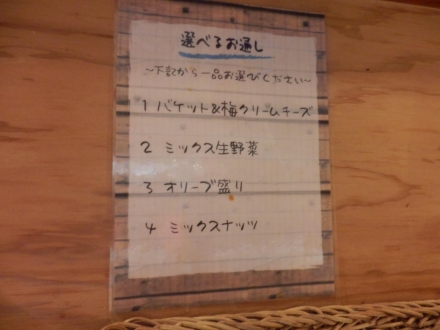 選べるお通し
～下記から一品お選びください～
1 バケット&梅クリームチーズ
2 ミックス生野菜
3 オリーブ盛り
4 ミックスナッツ